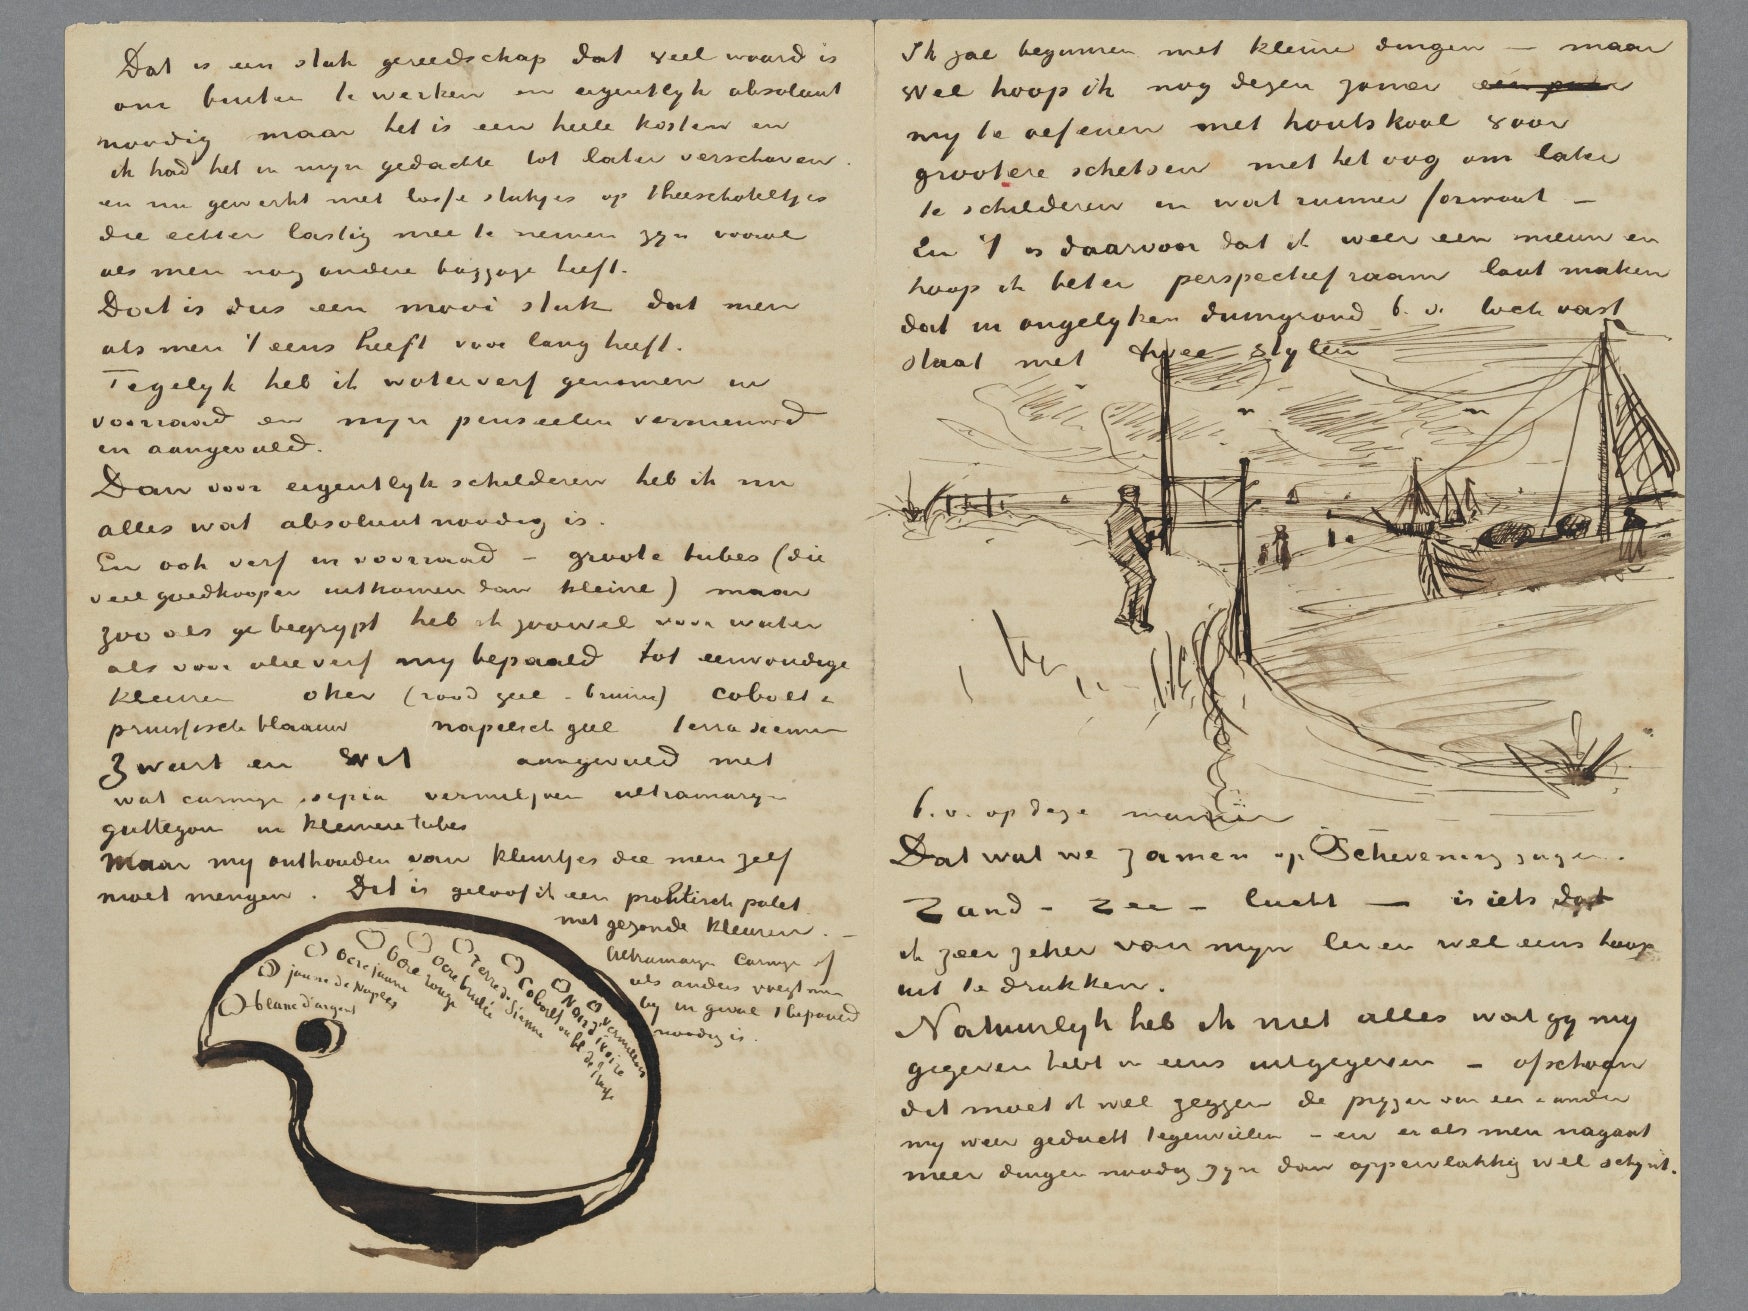 Dat is een stuk gereedschap dat veel waard is
om buiten te werken en eigentlyk absoluut
noodig maar het is een heele kosten en
ik had het in myn gedachte tot later verschoven.
en nu gewerkt met losse stukjes op theeschoteltjes
die echter lastig mee te nemen zyn vooral
als men nog andere baggage heeft.
Dat is dus een mooi stuk dat men
als men 't eens heeft voor lang heeft.
Tegelyk heb ik waterverf genomen in
voorraad en myn penseelen vernieuwd
en aangevuld.
Dan voor eigentlyk schilderen heb ik nu
alles wat absoluut noodig is.
En ook verf in voorraad – groote tubes (die
veel goedkooper uitkomen dan kleine) maar
zoo als ge begrypt heb ik zoowel voor water
als voor olieverf my bepaald tot eenvoudige
kleuren oker (rood geel - bruin) cobalt &
pruissisch blaauw napelsch geel terra sienna
zwart en wit aangevuld met
wat carmyn sepia vermiljoen ultramaryn
guttegom in kleinere tubes
Maar my onthouden van kleurtjes die men zelf
moet mengen. Dit is geloof ik een praktisch palet
met gezonde kleuren. –
Ultramaryn carmyn of
als anders voegt men
by in geval 't bepaald
noodig is.
blanc d'argent
jaune de Naples
Ocre jaune
Ocre rouge
Ocre brulée
Terre de Sienne
Cobalt ou bl de Prusse
Noir d'ivoire
vermillon
Ik zal beginnen met kleine dingen – maar
wel hoop ik nog dezen zomer
my te oefenen met houtskool voor
grootere schetsen met het oog om later
te schilderen in wat ruimer formaat –
En 't is daarvoor dat ik weer een nieuw en
hoop ik beter perspectiefraam laat maken
dat in ongelyken duingrond b.v. toch vast
staat met twee stylen
b.v. op deze manier
Dat wat we zamen op Schevening zagen.
zand – zee – lucht – is iets dat
ik zeer zeker van myn leven wel eens hoop
uit te drukken.
Natuurlyk heb ik niet alles wat gy my
gegeven hebt in eens uitgegeven – ofschoon
dit moet ik wel zeggen de pryzen van een & ander
my weer geducht tegenvielen – en er als men nagaat
meer dingen noodig zyn dan oppervlakkig wel schynt.